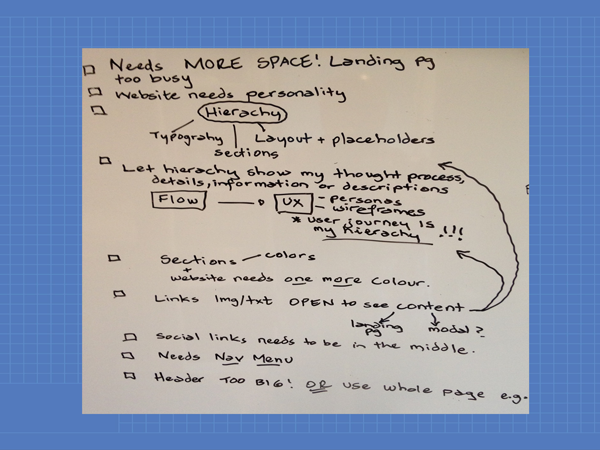 Needs MORE SPACE! Landing pg
too busy
Website needs personality
Hierachy
Typograhy
Layout + placeholders
sections
Let hierachy show my thought process,
details, information or descriptions
Flow
UX
- personas
- wireframes
* user journey is
my hierachy !!!
Sections - colors
+
website needs one more colour.
Links Img/txt OPEN to see content
landing
pg
modal?
Social links needs to be in the middle.
Needs Nav Menu
Header TOO BIG! OR use whole page e.g.